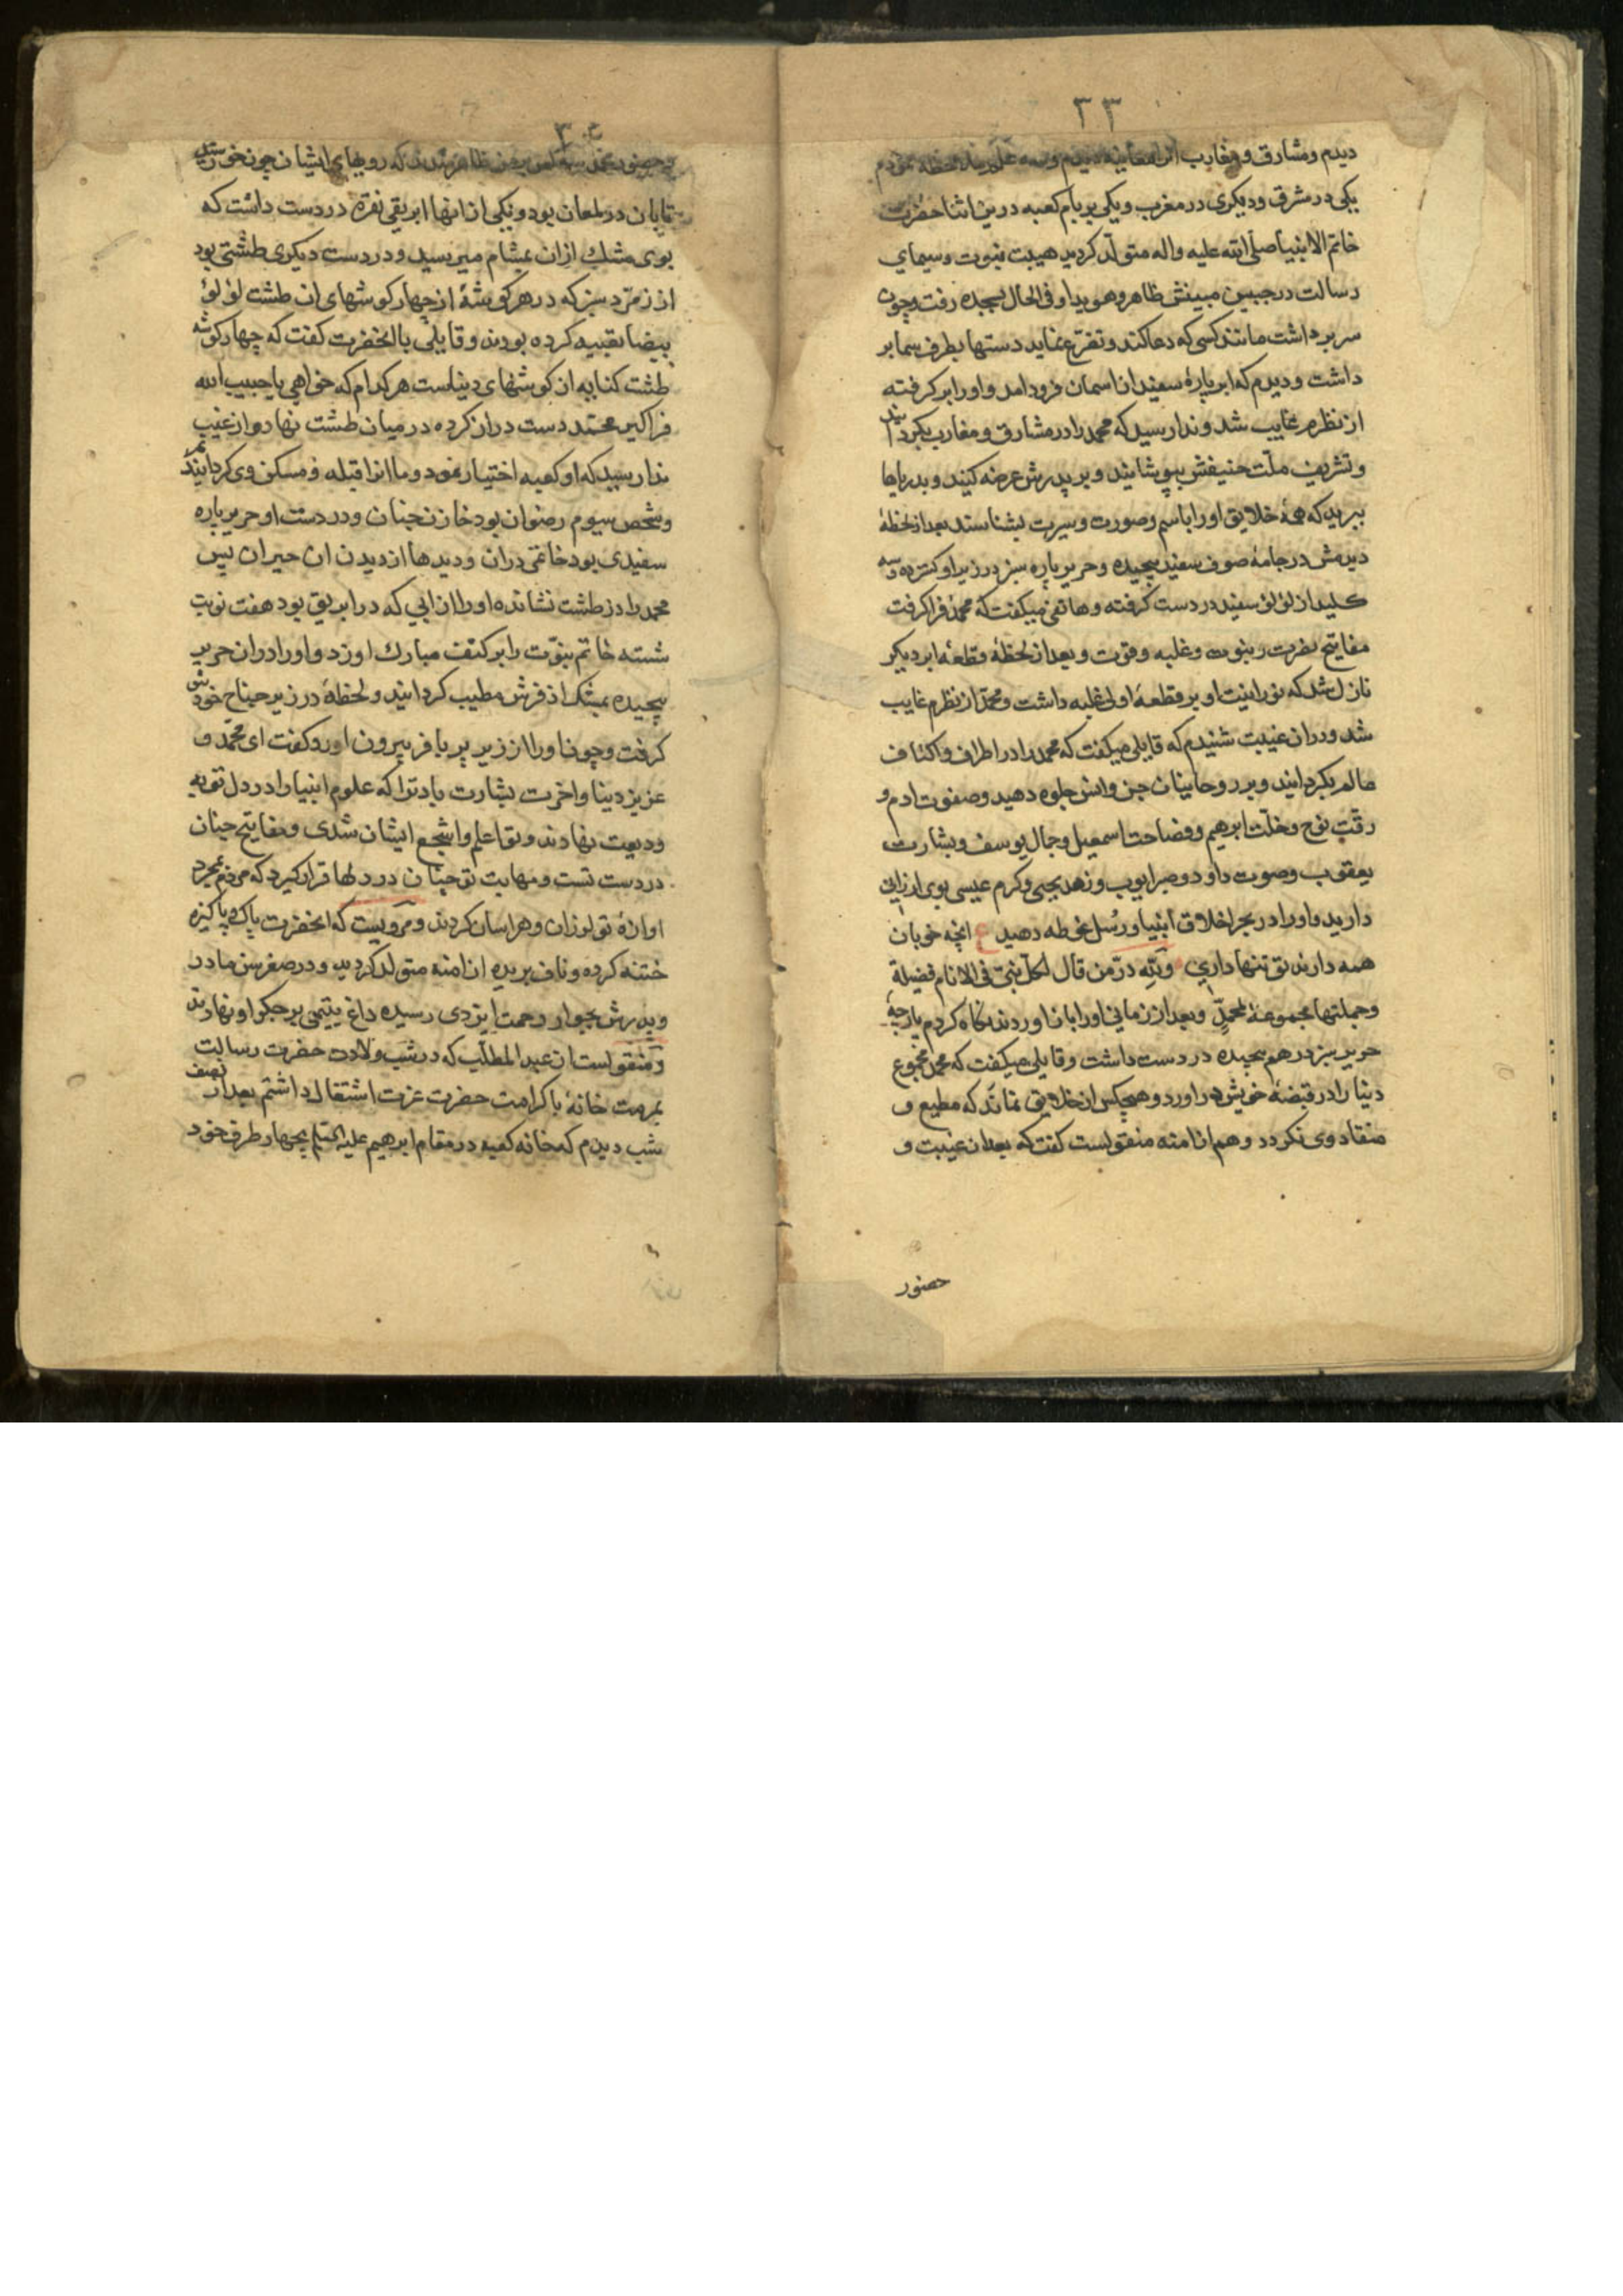 ۳۳
دیدم و مشارق و مغارب انرا معاینه دیدم و سه علم ملاحظه نمودم
یکی در مشرق ودیکری در مغرب ویکی بر بام کعبه درین اثنا حضرت
خاتم الانبیا صلی الله علیه واله متولد کردید هیبت نبوت وسیمای
رسالت در جبین مبینش ظاهر و هویدا و فی الحال بسجده رفت وچون
سر برداشت مانند کسی که دعا کند و تضرع نماید دستها بطرف سما بر
داشت ودیدم که ابر پارهٔ سفید از اسمان فرود امد و اورا بر کرفته
از نظرم غایب شد و ندا رسید که محمد را در مشارق و مغارب بکردانید
و تشریف ملت حنیفش بپوشانید و بر پدرش عرضه کنید و بدریاها
ببرید که همهٔ خلایق اورا باسم وصورت وسیرت بشناسند بعد از لحظهٔ
دیدمش در جامهٔ صوف سفید پیچیده و حریر پاره سبز در زیر او کسترده وسه
کلید از لؤلؤ سفید در دست کرفته و هاتفی میکفت که محمد فرا کرفت
مفاتیح نصرت و نبوت و غلبه و قوت و بعد از لحظهٔ قطعهٔ ابر دیکر
نازل شد که نورانیت او بر قطعهٔ اولی غلبه داشت و محمد از نظرم غایب
شد و دران غیبت شنیدم که قایلی میکفت که محمد را در اطراف و اکناف
عالم بکردانید و بر روحانیان جن وانس جلوه دهید وصفوت ادم و
رقت نوح و خلت ابرهیم و فصاحت اسمعیل و جمال یوسف و بشارت
یعقوب وصوت داود و صبر ایوب و زهد یحیی وکرم عیسی بوی ارزانی
دارید و اورا در بحر اخلاق انبیا ورسل غوطه دهید ع انچه خوبان
همه دارند تو تنها داری ولله در من قال لکل نبی فی الانام فضیلة
وجملتها مجموعة لمحمد و بعد از زمانی اورا باز اوردند نکاه کردم پارچهٔ
حریر سبز درهم پیچیده در دست داشت و قایلی میکفت که محمد مجموع
دنیا را در قبضهٔ خویش در اورد و هیچکس از خلایق نماند که مطیع و
منقاد وی نکردد و هم از امنه منقولست کفت که بعد از غیبت و
حضور
۳۴
حضور محمد سه کس بر من ظاهر شدند که رویهای ایشان چون خورشید
تابان در لمعان بود و یکی از انها ابریقی نقره در دست داشت که
بوی مشک ازان بمشام میرسید و در دست دیکری طشتی بود
از زمرد سبز که در هر کوشهٔ از چهار کوشهای ان طشت لؤلؤ
بیضا تعبیه کرده بودند و قایلی بانحضرت کفت که چهار کوشه
طشت کنایه از کوشهای دنیاست هر کدام که خواهی یا حبیب الله
فرا کیر محمد دست دراز کرده در میان طشت نهاد و از غیب
ندا رسید که او کعبه اختیار نمود و ما انرا قبله و مسکن وی کردانیدیم
و شخص سیوم رضوان بود خازن جنان و در دست او حریر پاره
سفیدی بود خاتمی دران و دیدها از دیدن ان حیران پس
محمد را در طشت نشانده اورا از ابی که در ابریق بود هفت نوبت
شسته خاتم نبوت را بر کتف مبارک او زد و اورا دران حریر
پیچیده بمشک اذفرش مطیب کردانید و لحظهٔ در زیر جناح خودش
کرفت وچون اورا از زیر پر با فر بیرون اورد کفت ای محمد و
عزیز دنیا واخرت بشارت باد ترا که علوم انبیا را در دل تو به
ودیعت نهادند و تو اعلم و اشجع ایشان شدی و مفاتیح جنان
در دست تست و مهابت تو چنان در دلها قرار کیرد که مردم بمجرد
اوازهٔ تو لرزان و هراسان کردند و مرویست که انحضرت پاک و پاکیزه
ختنه کرده و ناف بریده از امنه متولد کردید و در صغر سن مادر
وپدرش بجوار رحمت ایزدی رسیده داغ یتیمی بر جکر او نهادند
و منقولست از عبد المطلب که در شب ولادت حضرت رسالت
بمرمت خانهٔ با کرامت حضرت عزت اشتغال داشتم بعد از نصف
شب دیدم که خانه کعبه در مقام ابرهیم علیه السلم بچهار طرف خود